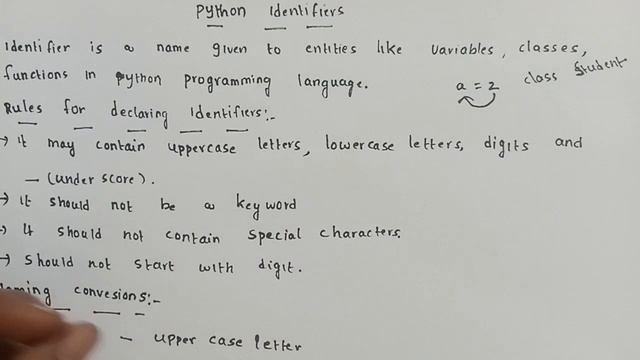 Python Identifiers
Identifier is a name given to entities like variables, classes,
functions in python programming language.
a = 2
class Student
Rules for declaring Identifiers:-
→ It may contain uppercase letters, lowercase letters, digits and
_ (under score).
→ It should not be a keyword
→ It should not contain special characters.
→ should not start with digit.
convesions:-
— upper case letter